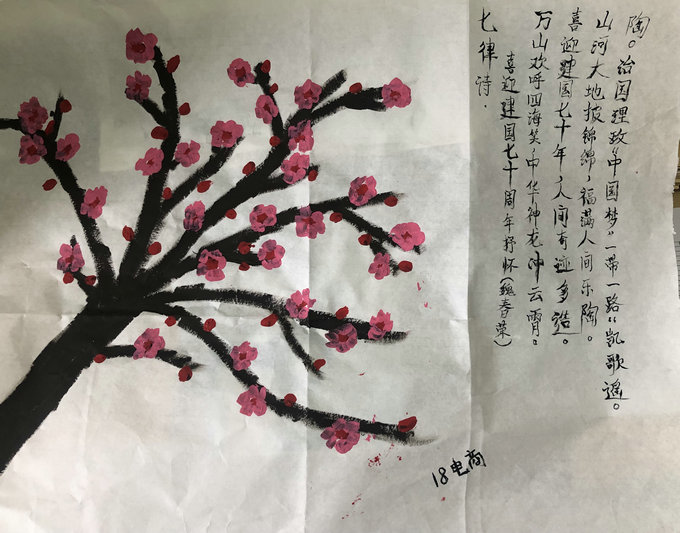 七律诗.
喜迎建国七十周年抒怀(魏春荣)
万山欢呼四海笑,中华神龙冲云霄。
喜迎建国七十年,人间奇迹多造。
山河大地披锦绵,福满人间乐陶。
陶。治国理政"中国梦"一带一路"凯歌遥。
18电商